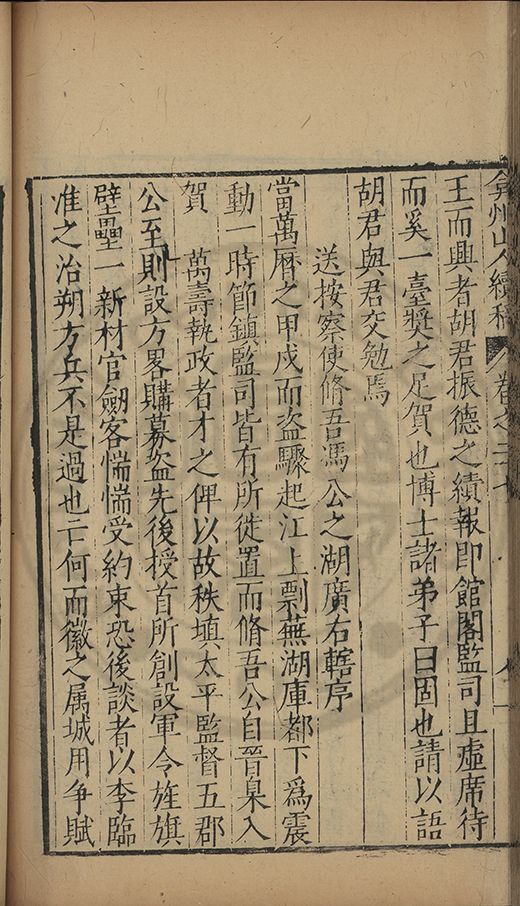 弇州山人續稿 卷之三十七
王而興者胡君振德之績報即館閣監司且虛席待
而奚一臺獎之足賀也博士諸弟子曰固也請以語
胡君與君交勉焉
送按察使脩吾馮公之湖廣右轄序
當萬曆之甲戌而盜驟起江上剽蕪湖庫都下爲震
動一時節鎮監司皆有所徙置而脩吾公自晉臬入
賀 萬壽執政者才之俾以故秩填太平監督五郡
公至則設方畧購募盜先後授首所創設軍令旌旗
壁壘一新材官劒客惴惴受約束恐後談者以李臨
淮之治朔方兵不是過也亡何而徽之属城用爭賦